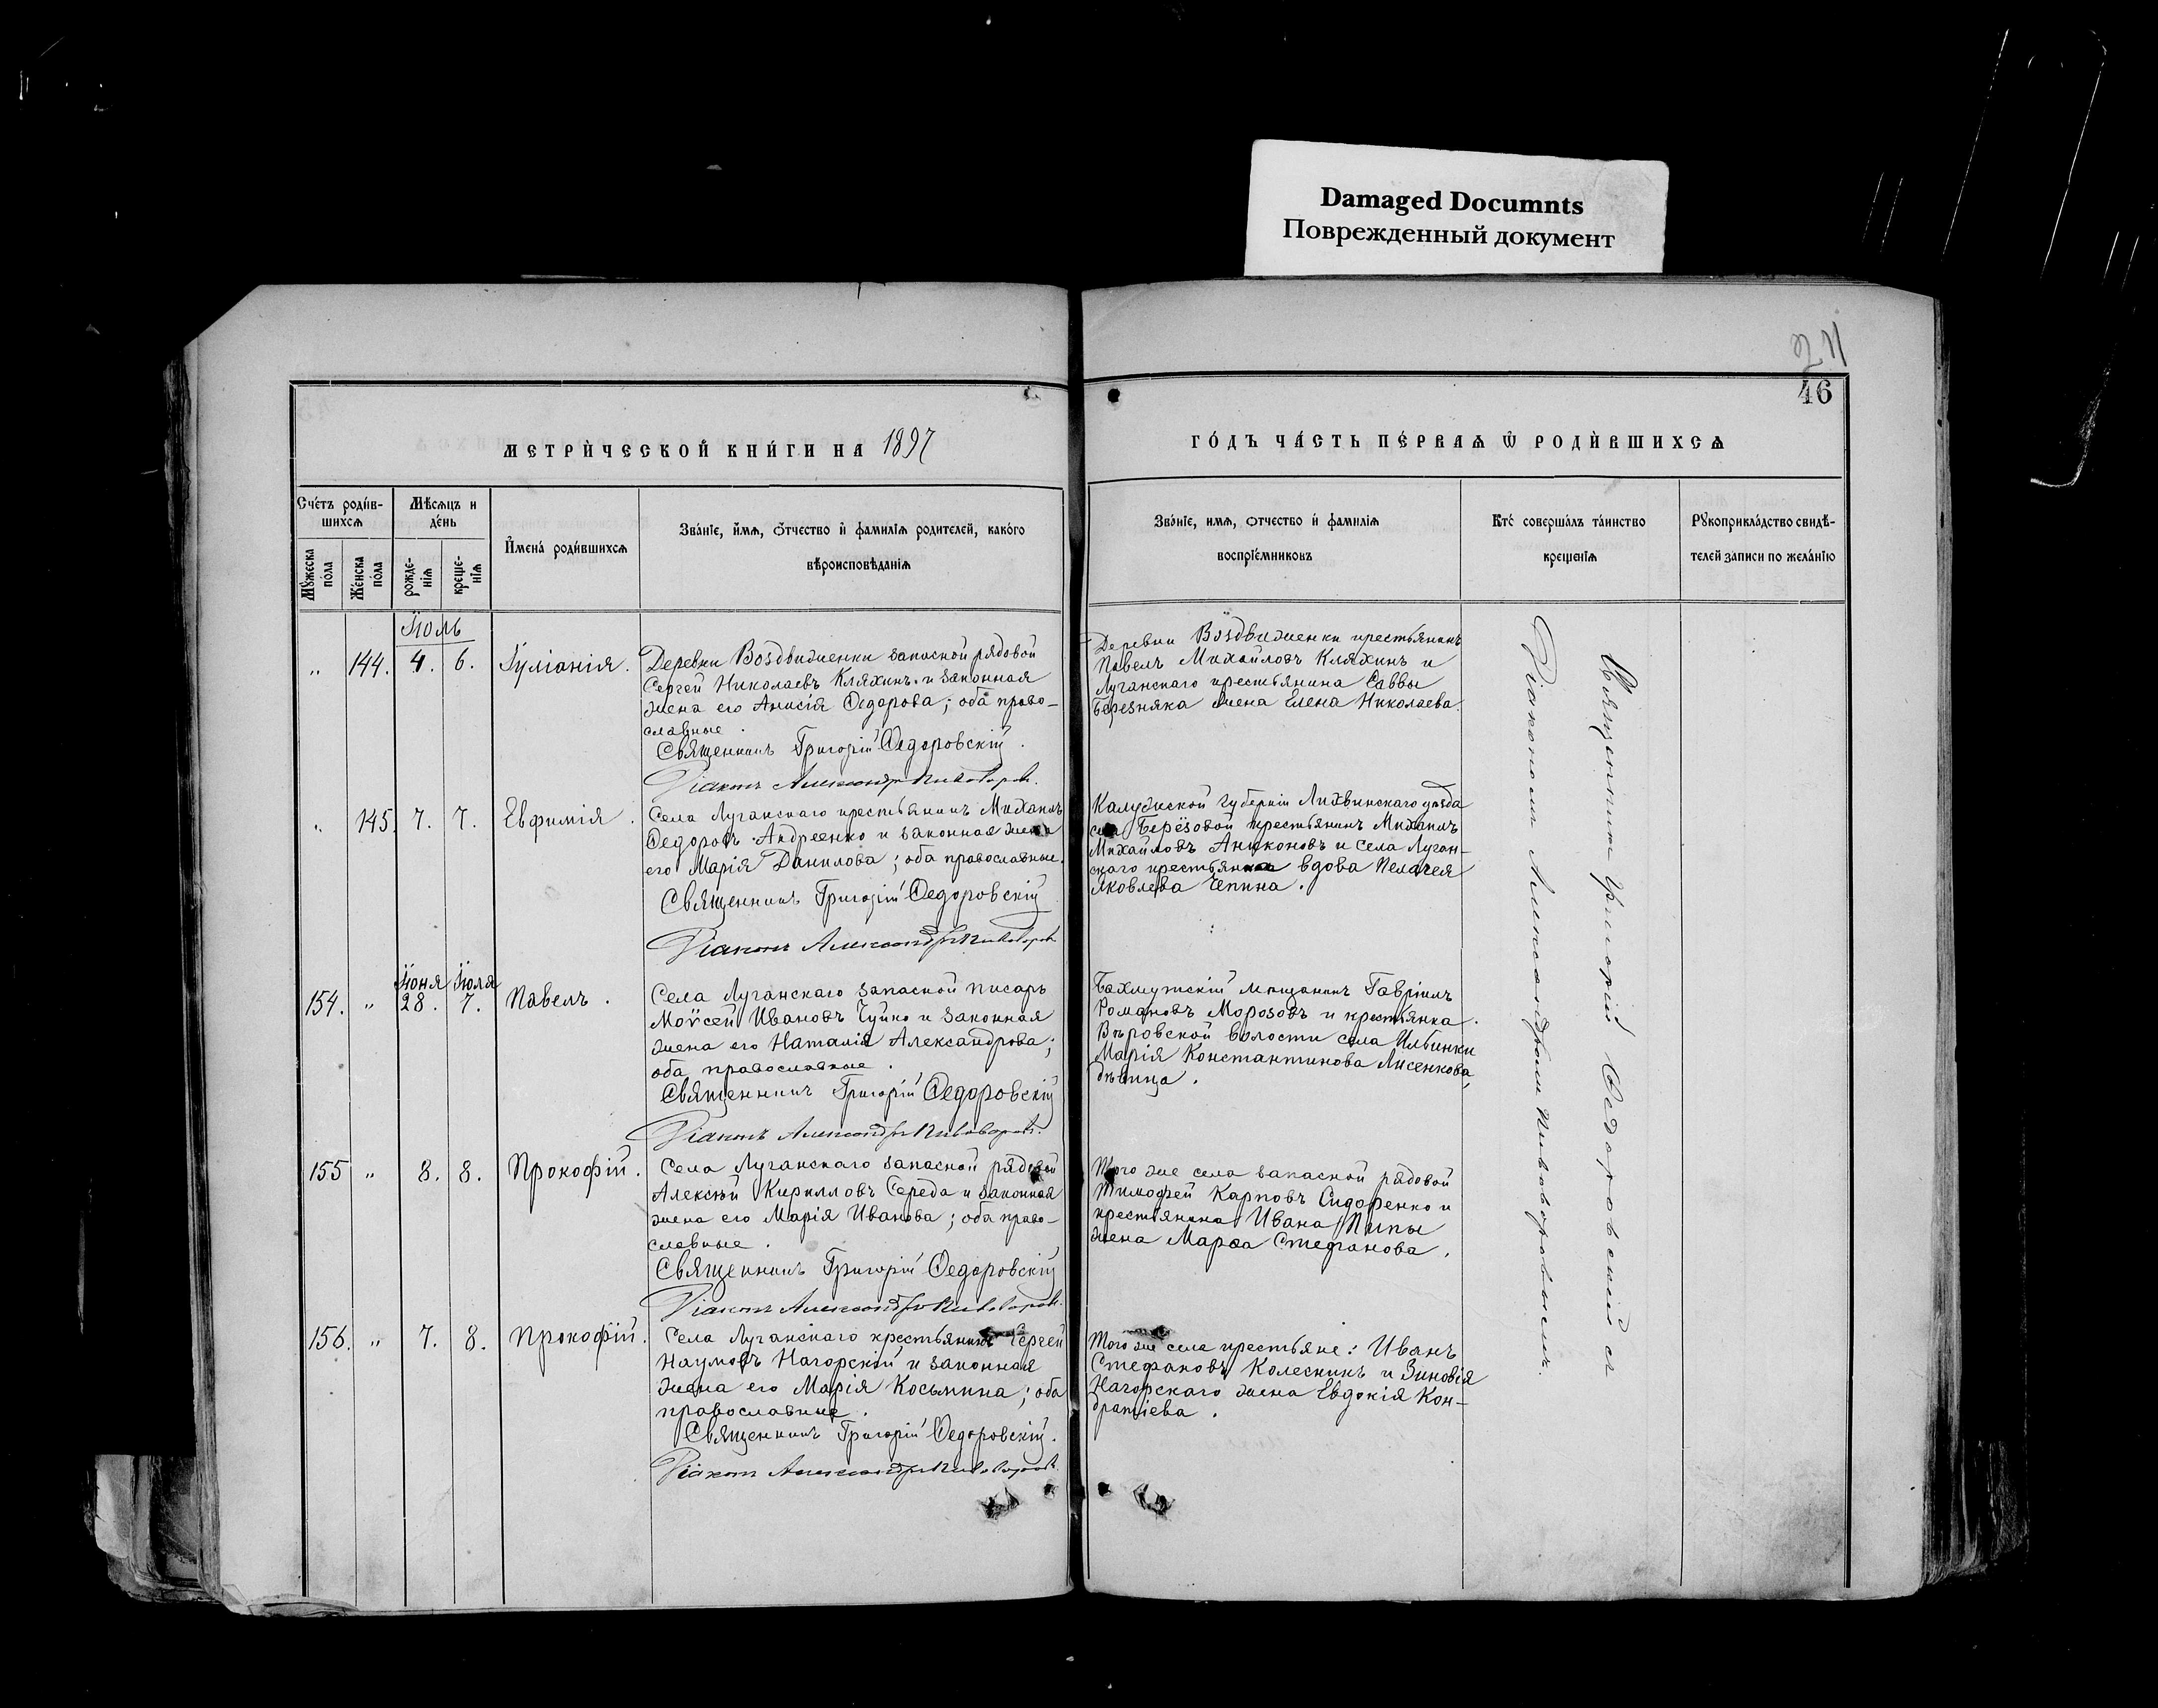 Damaged Documnts
Поврежденный документ
46
МЕТРИ́ЧЕСКОЙ КНИ́ГИ НА 1897
ГО́ДЪ ЧА́СТЬ ПЕ́РВАѦ Ѿ РОДИ́ВШИХСѦ
Сче́тъ роди́в-
шихсѧ
Мѣсѧцъ и
де́нь
Мꙋжеска
по́ла
Же́нска
по́ла
рожде-
нїѧ
креще-
нїѧ
И҆мена́ роди́вшихсѧ
Зва́нїе, и҆мѧ, о҆тчество и҆ фамилїѧ родителей, како́го
вѣроисповѣданїѧ
Зва́нїе, имѧ, отчество и҆ фамилїѧ
воспрїе́мниковъ
Кто́ соверша́лъ та́инство
крещенїѧ
Рꙋкоприкла́дство свидѣ-
телей записи по жела́нїю
Іюль
„ 144. 4. 6. Іуліанія.
Деревни Воздвиженки запасной рядовой
Сергей Николаевъ Кляхинъ и законная
жена его Анисія Ѳедорова; оба право-
славные.
Священникъ Григорій Ѳедоровскій.
Діаконъ Александръ Пивоваровъ.
Деревни Воздвиженки крестьянинъ
Павелъ Михайловъ Кляхинъ и
Луганскаго крестьянина Саввы
Березняка жена Елена Николаева.
„ 145. 7. 7. Евфимія.
Села Луганскаго крестьянинъ Михаилъ
Ѳедоровъ Андреенко и законная жена
его Марія Данилова; оба православные.
Священникъ Григорій Ѳедоровскій
Діаконъ Александръ Пивоваровъ
Калужской губерніи Лихвинскаго уѣзда
села Берёзовой крестьянинъ Михаилъ
Михайловъ и села Луган-
скаго вдова Пелагея
Яковлева Чепина.
Іюня Іюля
154. „ 28. 7. Павелъ.
Села Луганскаго запасной писарь
Моѵсей Ивановъ Чуйко и законная
жена его Наталія Александрова;
оба православные.
Священникъ Григорій Ѳедоровскій
Діаконъ Александръ Пивоваровъ.
Бахмутскій мѣщанинъ Гавріилъ
Романовъ Морозовъ и крестьянка
Вѣровской волости села Ильинки
Марія Константинова Лисенкова,
дѣвица.
155 „ 8. 8. Прокофій.
Села Луганскаго запасной рядовой
Алексѣй Кирилловъ Середа и законная
жена его Марія Иванова; оба право-
славные.
Священникъ Григорій Ѳедоровскій
Діаконъ Александръ Пивоваровъ.
Того же села запасной рядовой
Тимофей Карповъ Сидоренко и
крестьянина Ивана Пипы
жена Марѳа Стефанова.
156. „ 7. 8. Прокофій.
Села Луганскаго крестьянинъ Сергей
Наумовъ Нагорскій и законная
жена его Марія Косьмина; оба
православные.
Священникъ Григорій Ѳедоровскій.
Діаконъ Александръ Пивоваровъ
Того же села крестьяне: Иванъ
Стефановъ Колесникъ и Зиновія
Нагорскаго жена Евдокія Кон-
дратіева.
Священникъ Григорій Ѳедоровскій съ
Діакономъ Александромъ Пивоваровымъ.